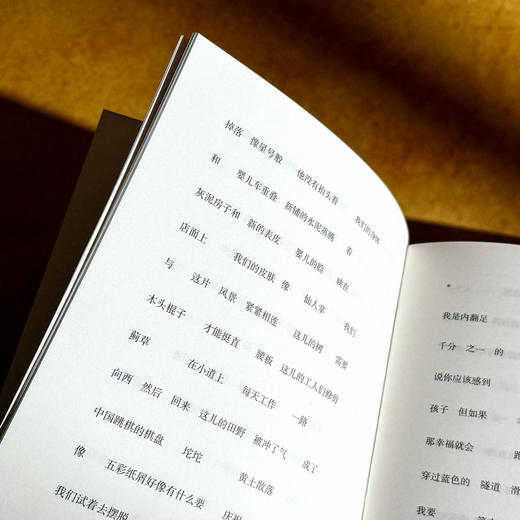 掉落 像星号般 他没有抬头看 我们的身体
和 婴儿车重叠 新铺的水泥蒸腾 着
灰泥房子和 新的表皮 婴儿的脸 映在
店面上 我们的皮肤 像 仙人掌 我们
与 这片 风景 紧紧相连 这儿的树 需要
木头棍子 才能挺直 腰板 这儿的工人们修剪
蓟草 在小道上 每天工作 一路
向西 然后 回来 这儿的田野 被冲了气 成了
中国跳棋的棋盘 坨坨 黄土散落
像 五彩纸屑好像有什么要 庆祝
我们试着去摆脱
我是内翻足
千分 之一 的
说你应该感到
孩子 但如果
那幸福就会 跑
穿过蓝色的 隧道 滑
我要